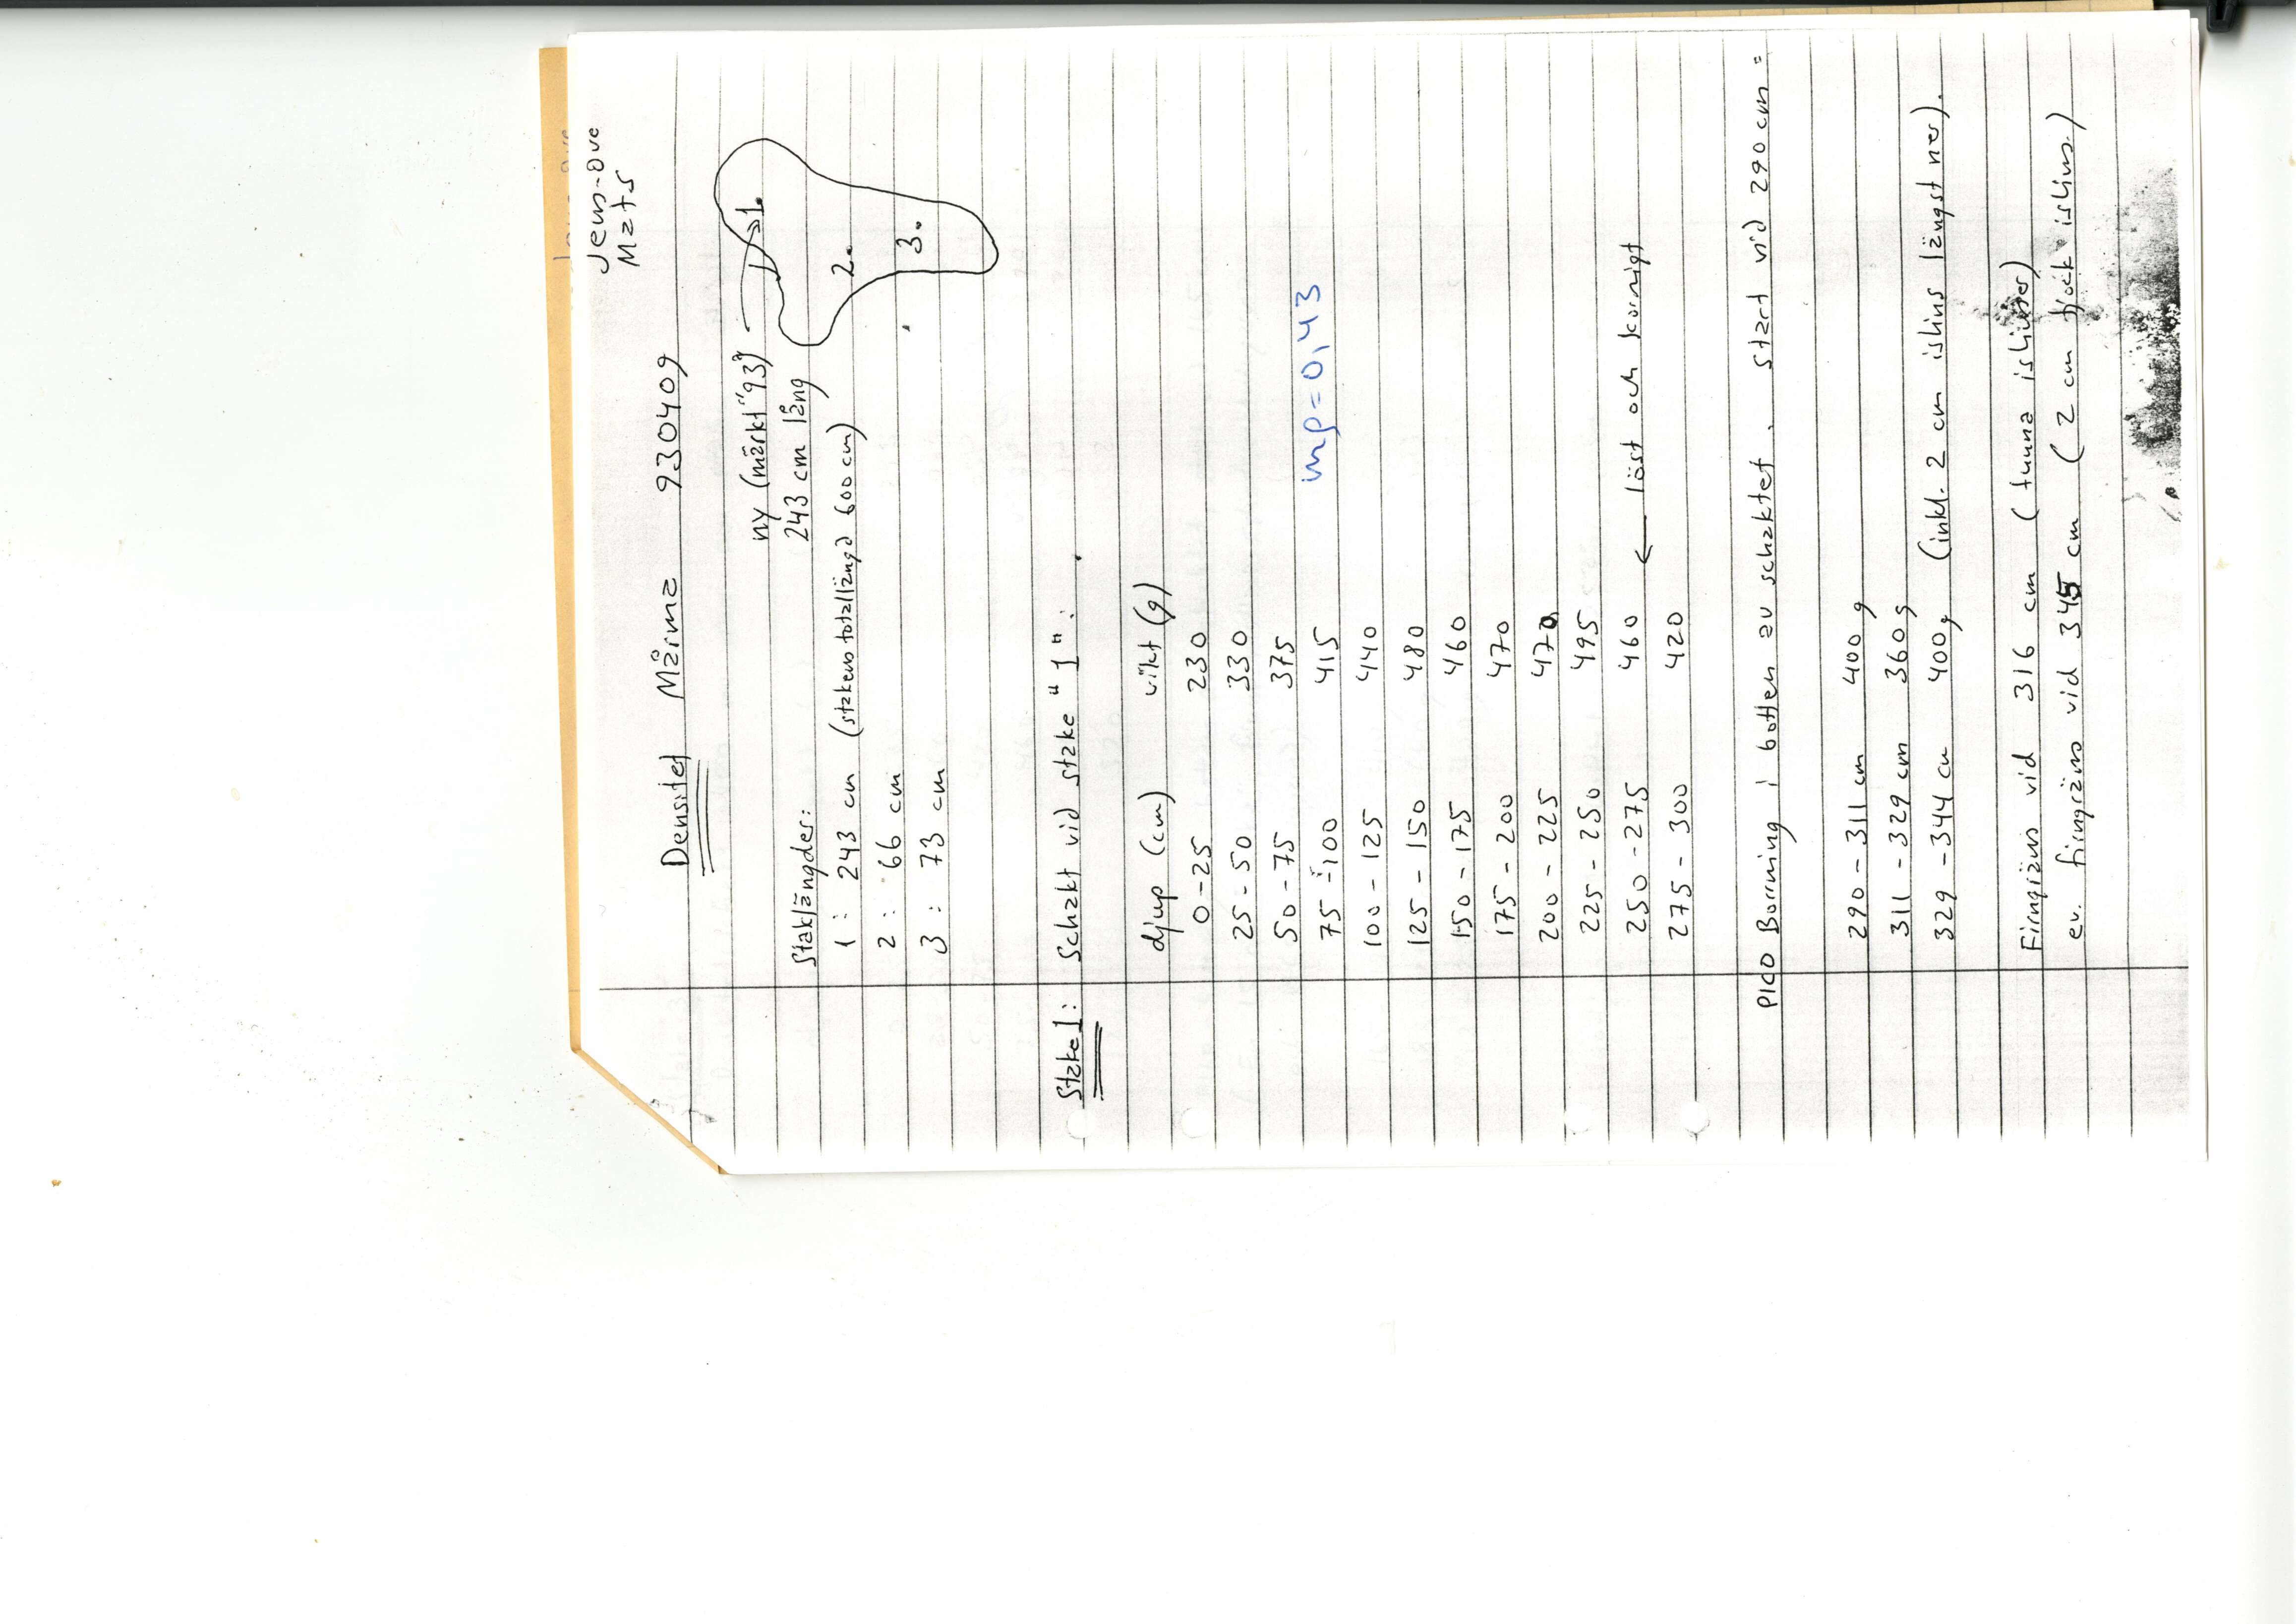 Jens-Ove
Mats
Densitet Mårma 930409
ny (märkt "93") 1.
243 cm lång
Staklängder:
1 : 243 cm (stakens totallängd 600 cm)
2.
2 : 66 cm
3.
3 : 73 cm
Stake 1: Schakt vid stake "1":
djup (cm) vikt (g)
0-25 230
25-50 330
50-75 375
mρ=0,43
75-100 415
100-125 440
125-150 480
150-175 460
175-200 470
200-225 470
225-250 495
250-275 460 ← löst och kornigt
275-300 420
PICO Borrning i botten av schaktet. Start vid 290 cm =
290-311 cm 400 g
311-329 cm 360 g
329-344 cm 400 g (inkl. 2 cm islins längst ner).
Firngräns vid 316 cm (tunna islinser)
ev. firngräns vid 345 cm (2 cm tjock islins.)